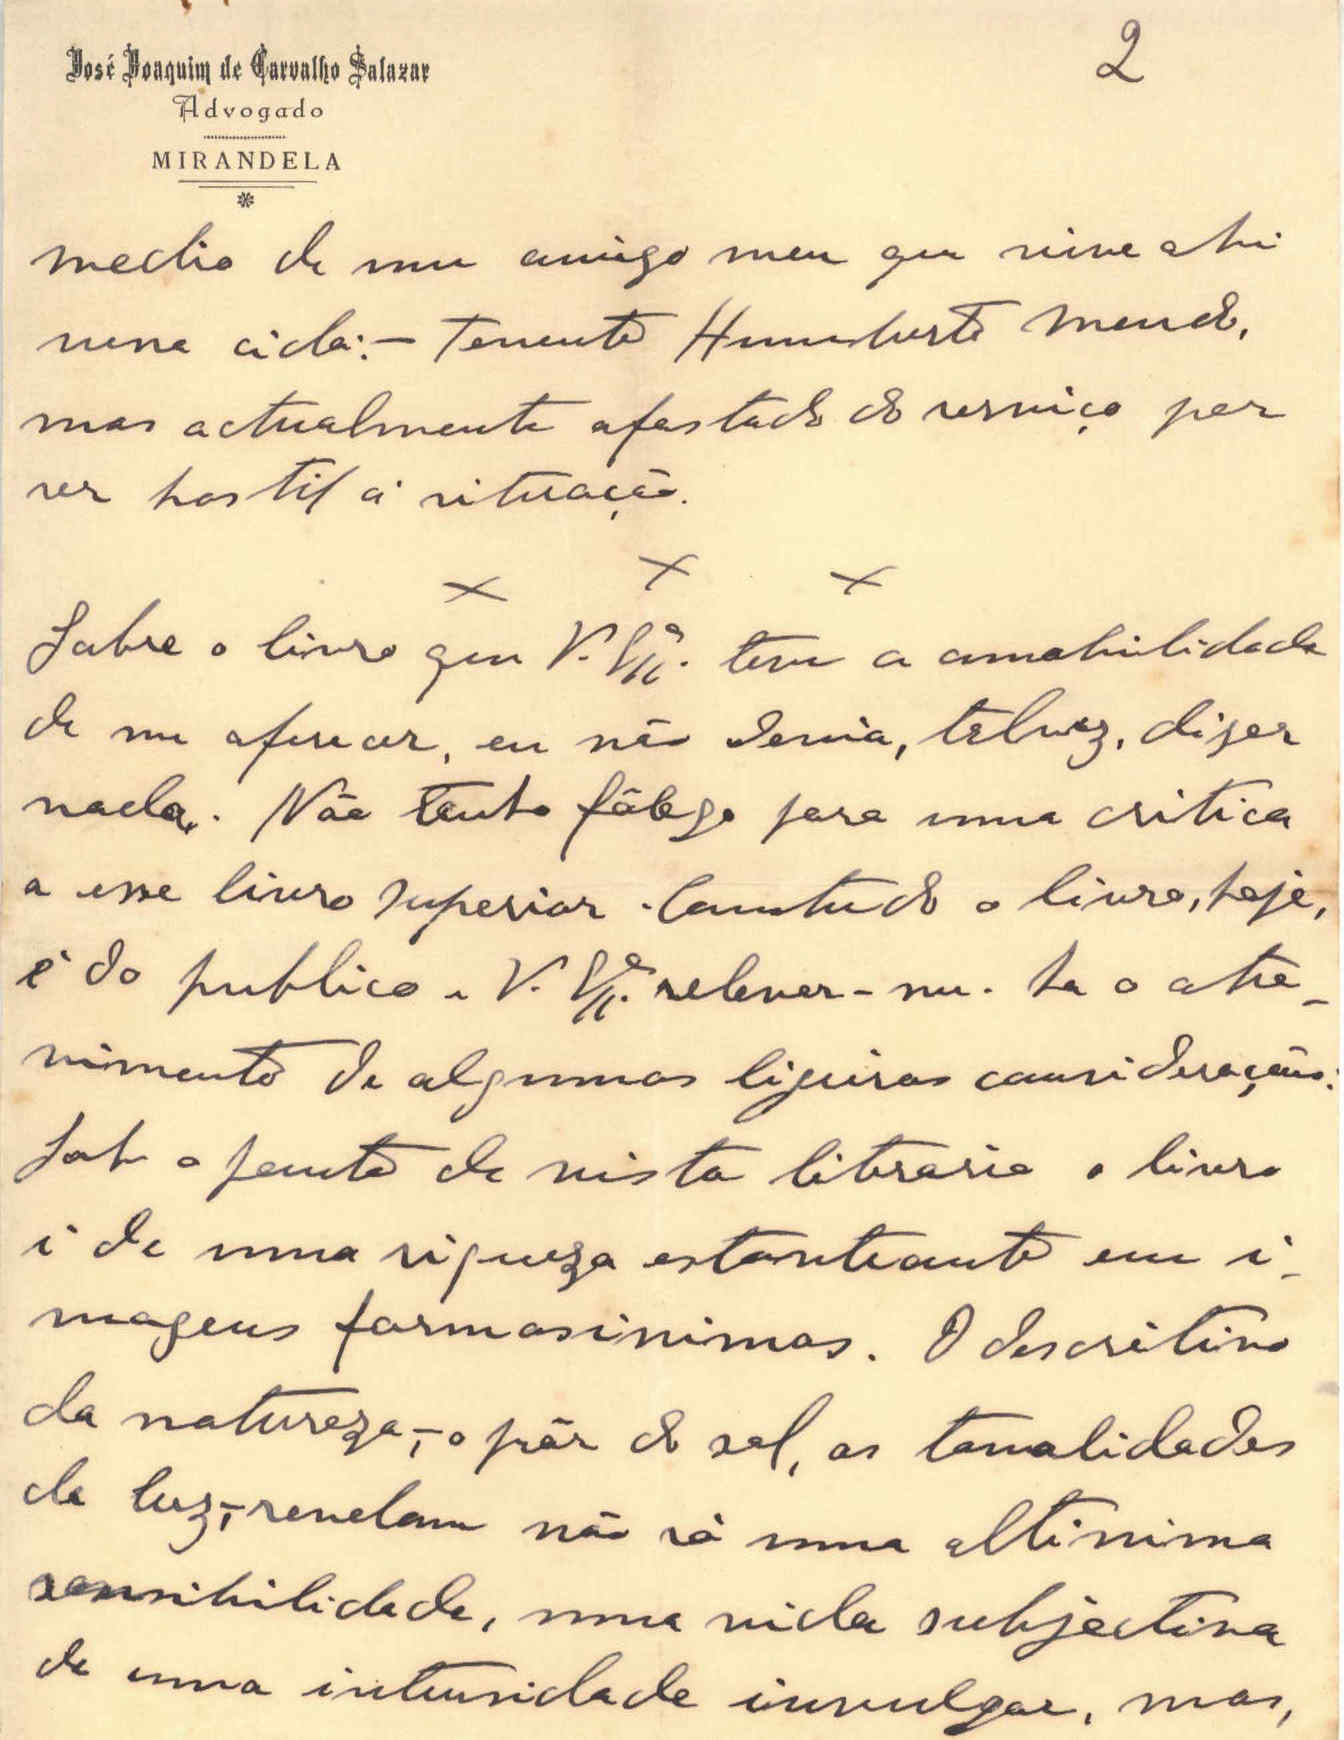 2
José Joaquim de Carvalho Salazar
Advogado
MIRANDELA
medio de um amigo meu que vive ahi
nessa cida:- Tenente Humberto Mendo,
mas actualmente afastado do serviço por
ser hostil á situação.
X X X
Sobre o livro que V. Exª. teve a amabilidade
de me oferecer, eu não devia, talvez, dizer
nada. Não tenho fôlego para uma critica
a esse livro superior. Comtudo o livro, hoje,
é do publico e V. Exª. relevar-me-ha o atre-
vimento de algumas ligeiras considerações:
Sob o ponto de vista literario o livro
é de uma riqueza estonteante em i-
magens formosissimas. O descritivo
da natureza,- o pôr do sol, as tonalidades
da luz,- revelam não só uma altissima
sensibilidade, uma vida subjectiva
de uma intensidade invulgar, mas,